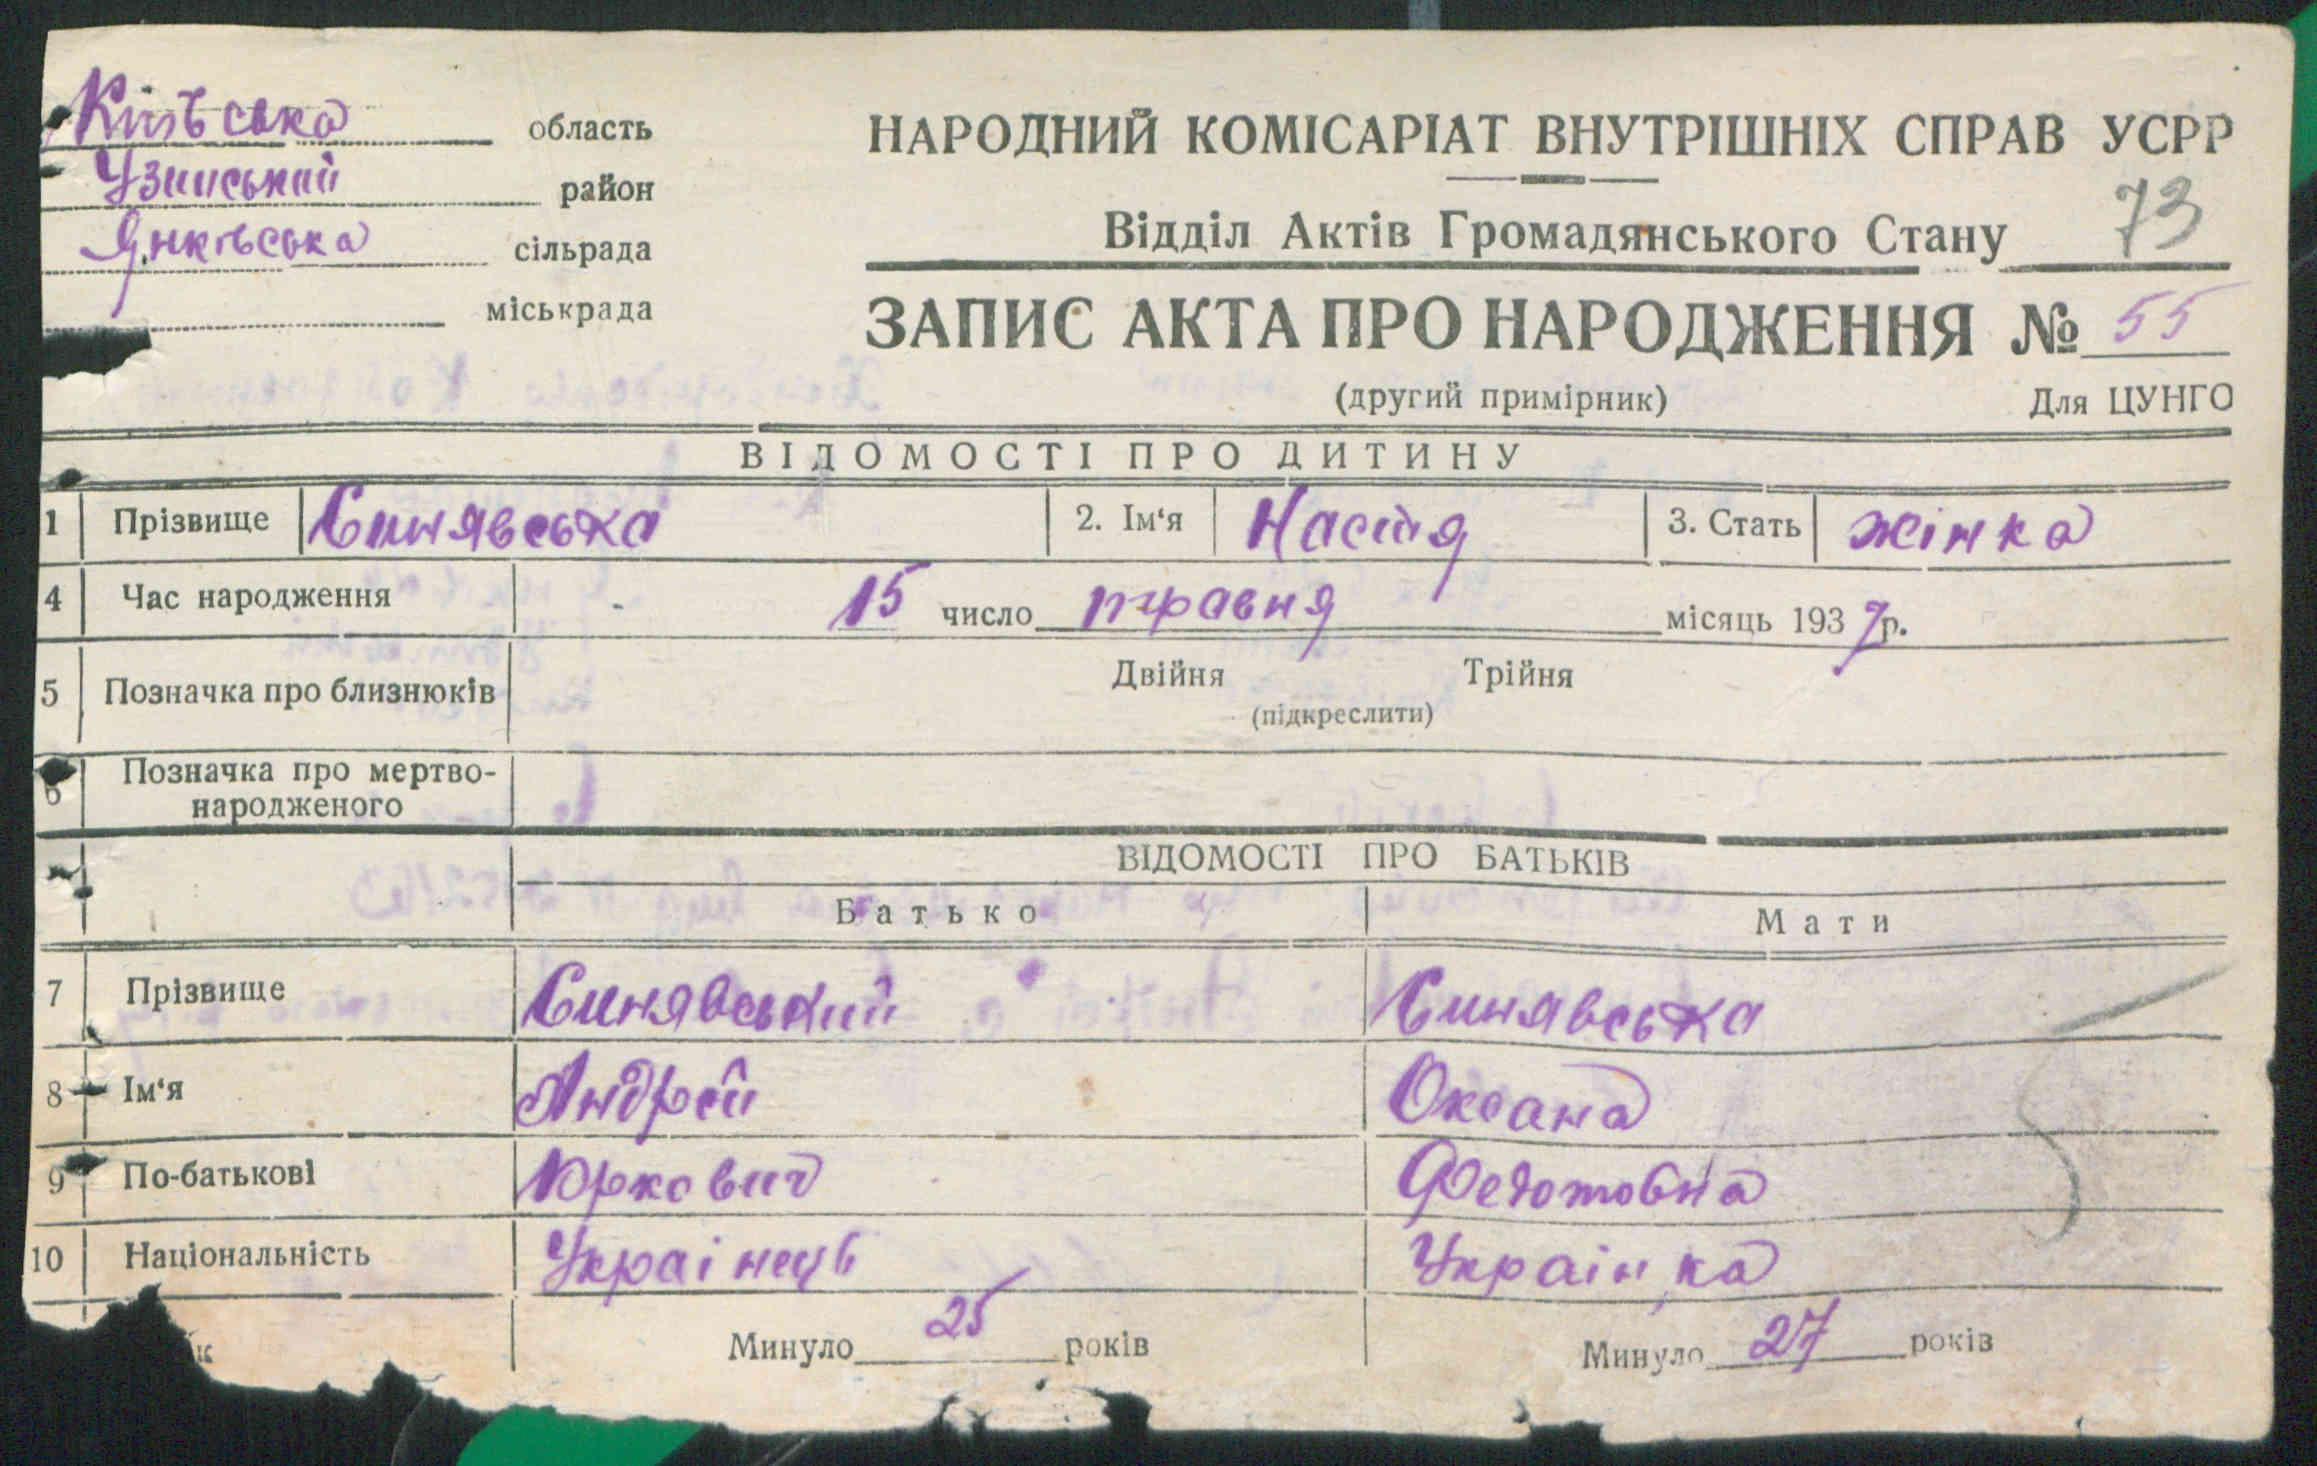 Київська область
Узинський район
Янківська сільрада
міськрада
НАРОДНИЙ КОМІСАРІАТ ВНУТРІШНІХ СПРАВ УСРР
Відділ Актів Громадянського Стану 73
ЗАПИС АКТА ПРО НАРОДЖЕННЯ № 55
(другий примірник) Для ЦУНГО
ВІДОМОСТІ ПРО ДИТИНУ
1 Прізвище Синявська 2. Ім‘я Настя 3. Стать жінка
4 Час народження 15 число травня місяць 1937 р.
5 Позначка про близнюків Двійня Трійня
(підкреслити)
6 Позначка про мертво-
народженого
ВІДОМОСТІ ПРО БАТЬКІВ
Батько Мати
7 Прізвище Синявський Синявська
8 Ім‘я Андрей Оксана
9 По-батькові Юркович Федотовна
10 Національність Украінець Украінка
Минуло 25 років Минуло 27 років